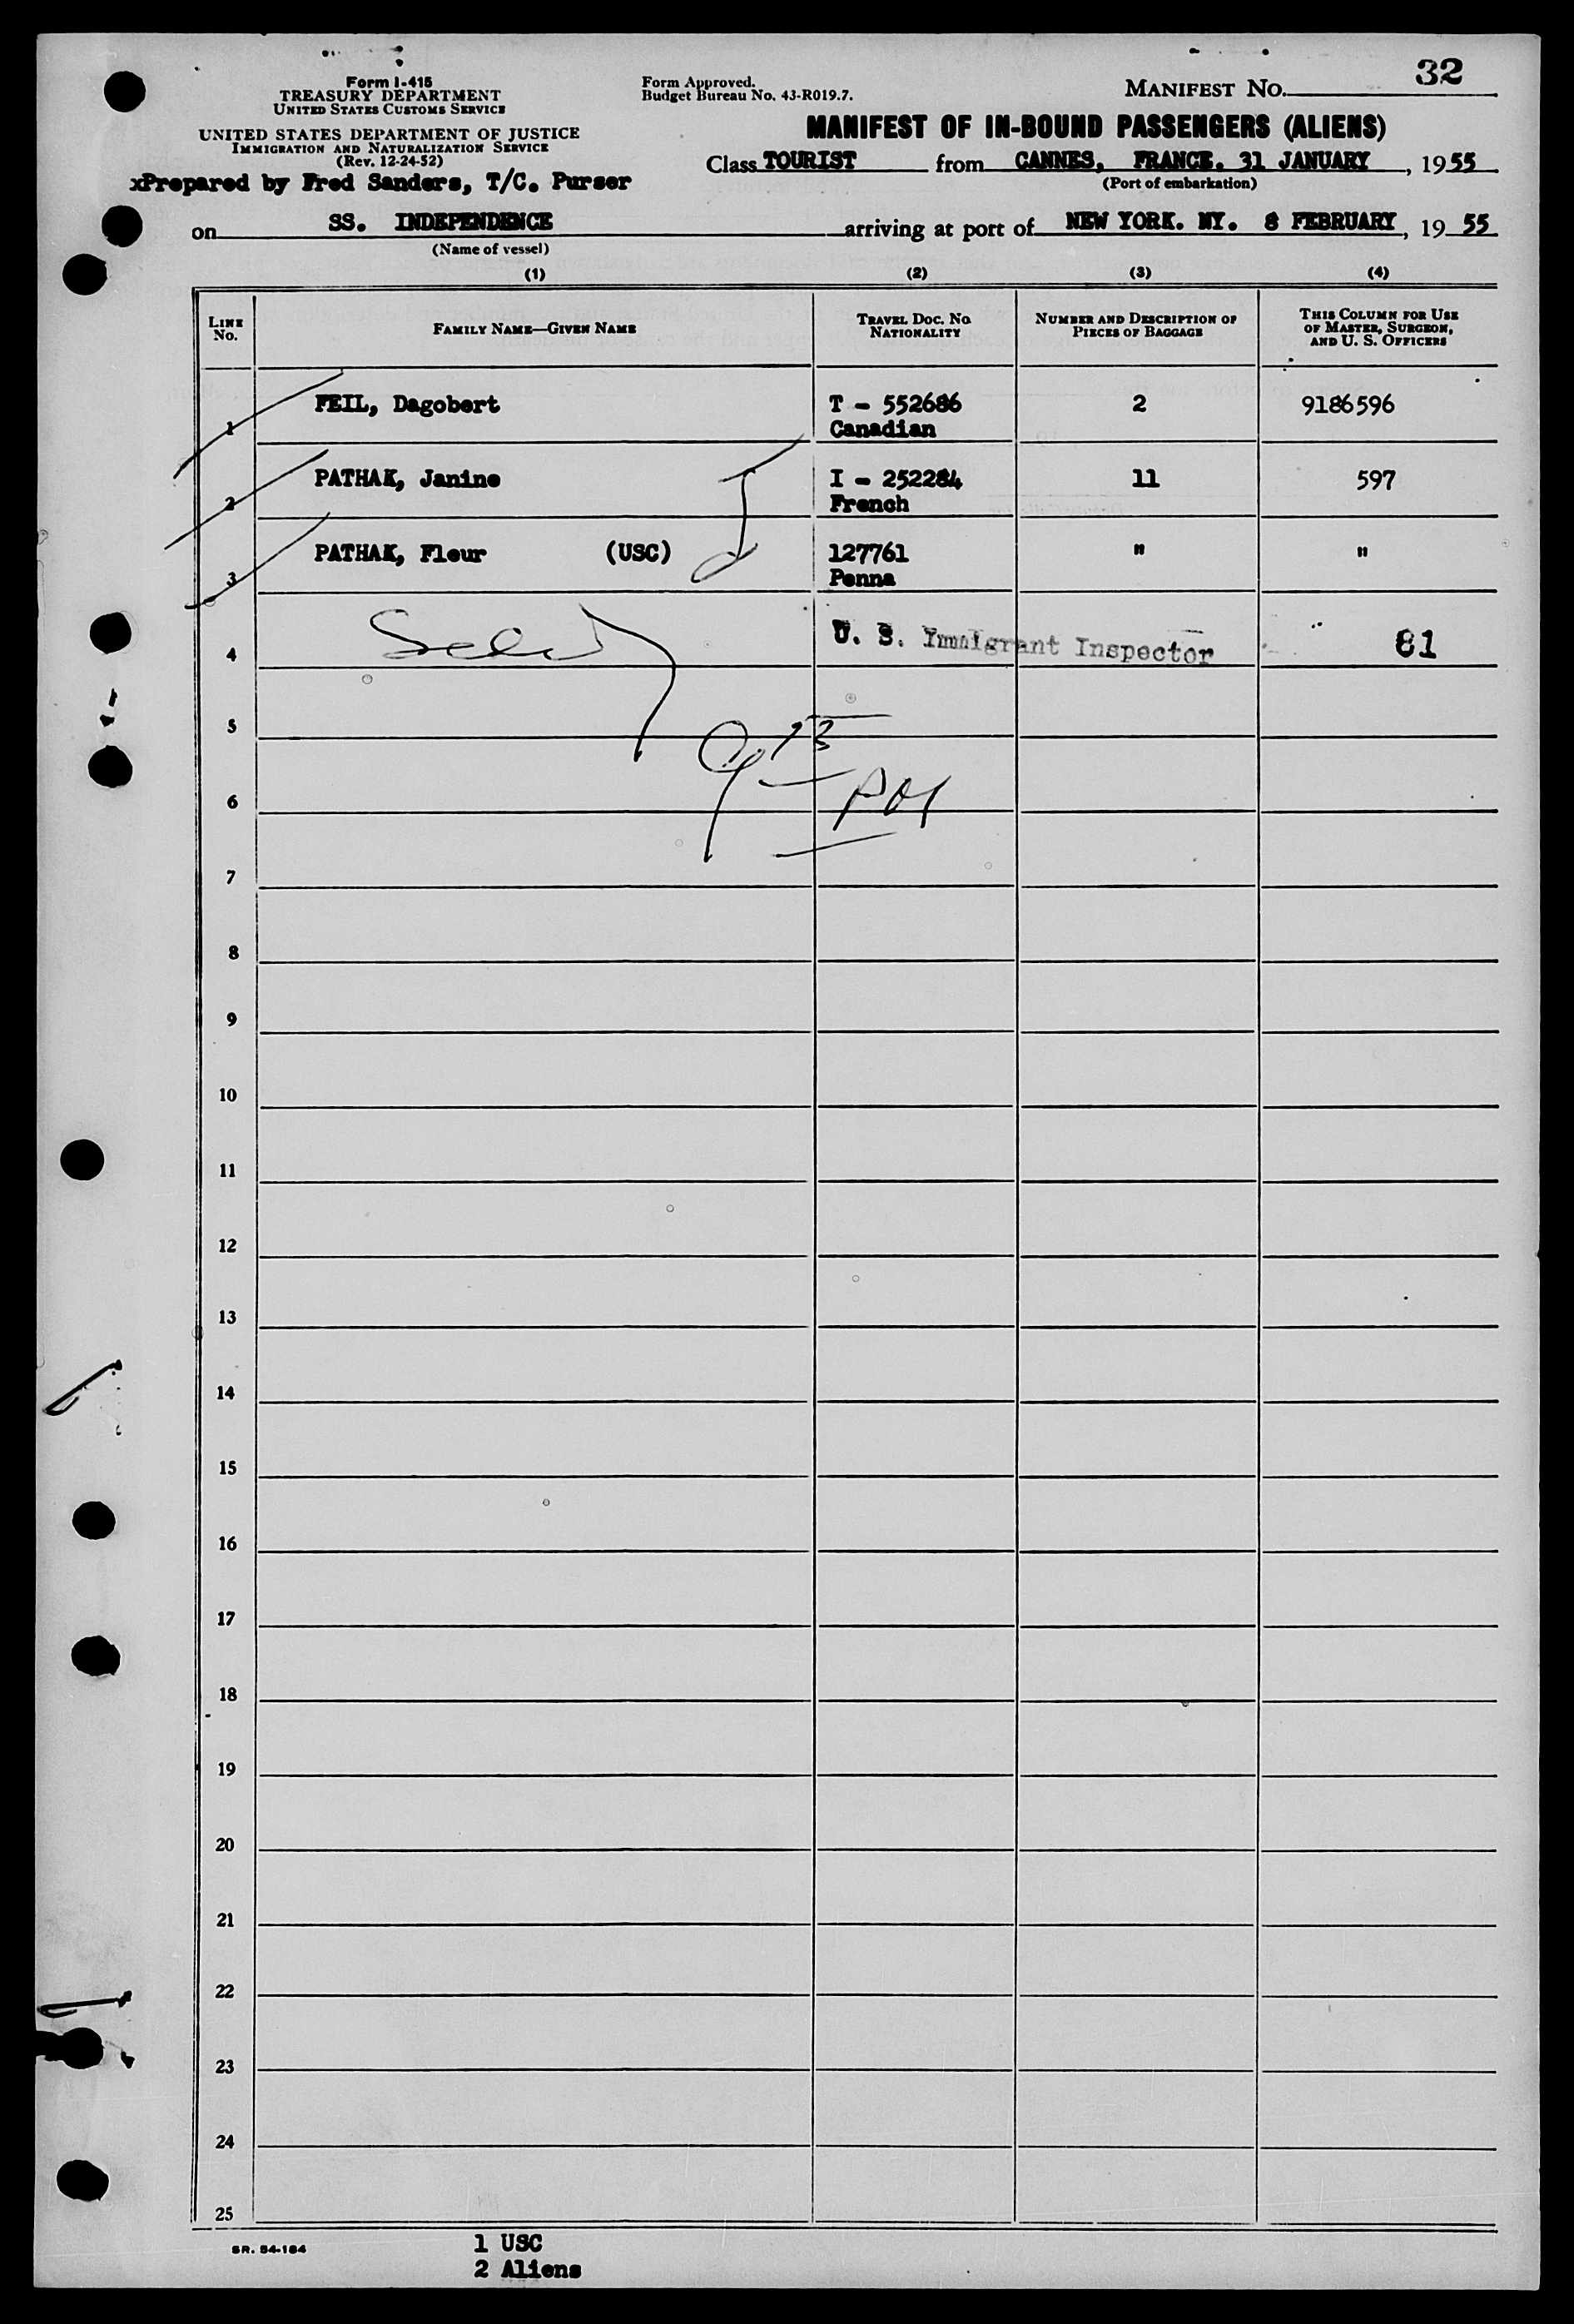 Form I-415
TREASURY DEPARTMENT
UNITED STATES CUSTOMS SERVICE
UNITED STATES DEPARTMENT OF JUSTICE
IMMIGRATION AND NATURALIZATION SERVICE
(Rev. 12-24-52)
xPrepared by Fred Sanders, T/C. Purser
Form Approved.
Budget Bureau No. 43-R019.7.
MANIFEST NO. 32
MANIFEST OF IN-BOUND PASSENGERS (ALIENS)
Class TOURIST from CANNES, FRANCE. 31 JANUARY, 1955
(Port of embarkation)
on SS. INDEPENDENCE arriving at port of NEW YORK. NY. 8 FEBRUARY, 19 55
(Name of vessel)
(1) (2) (3) (4)
LINE No.
FAMILY NAME—GIVEN NAME
TRAVEL DOC. NO. NATIONALITY
NUMBER AND DESCRIPTION OF PIECES OF BAGGAGE
THIS COLUMN FOR USE OF MASTER, SURGEON, AND U. S. OFFICERS
1 FEIL, Dagobert T - 552686 2 9186596
Canadian
2 PATHAK, Janine I - 252284 11 597
French
3 PATHAK, Fleur (USC) 127761 " "
Penna
4 U. S. Immigrant Inspector 81
5
6
7
8
9
10
11
12
13
14
15
16
17
18
19
20
21
22
23
24
25
SR. 54-184
1 USC
2 Aliens